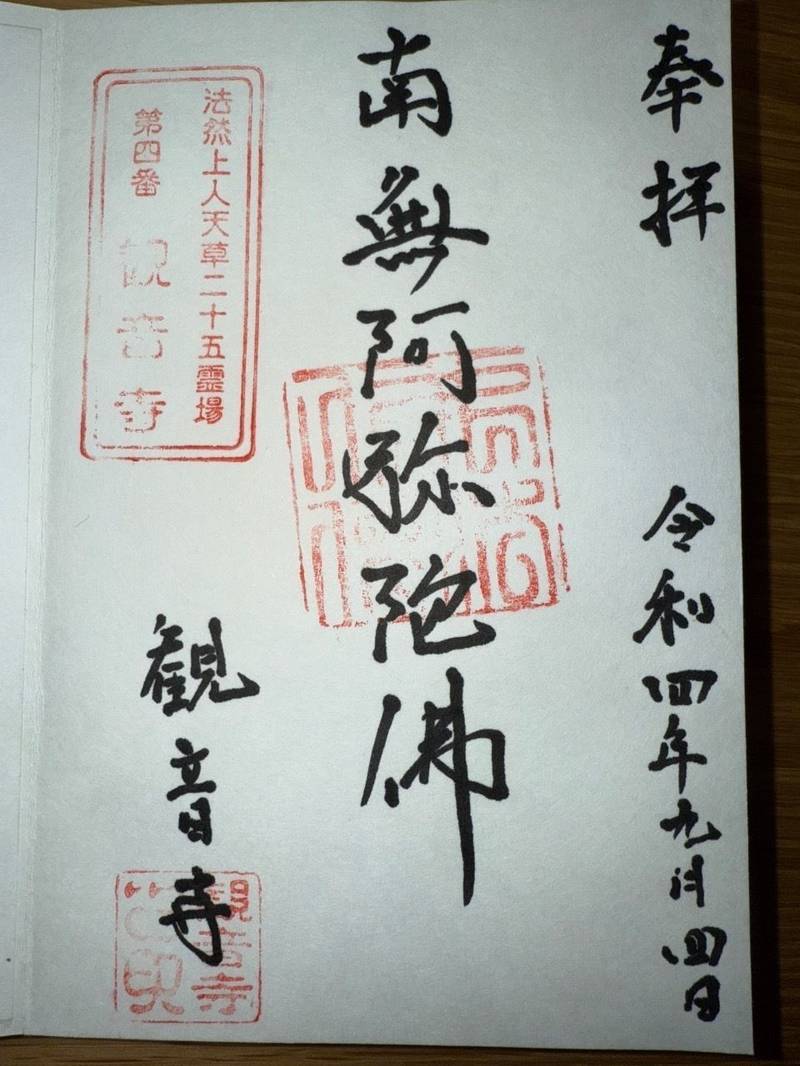 奉拝
令和四年九月四日
南無阿弥陀佛
法然上人天草二十五霊場
第四番 観音寺
観音寺
観音寺